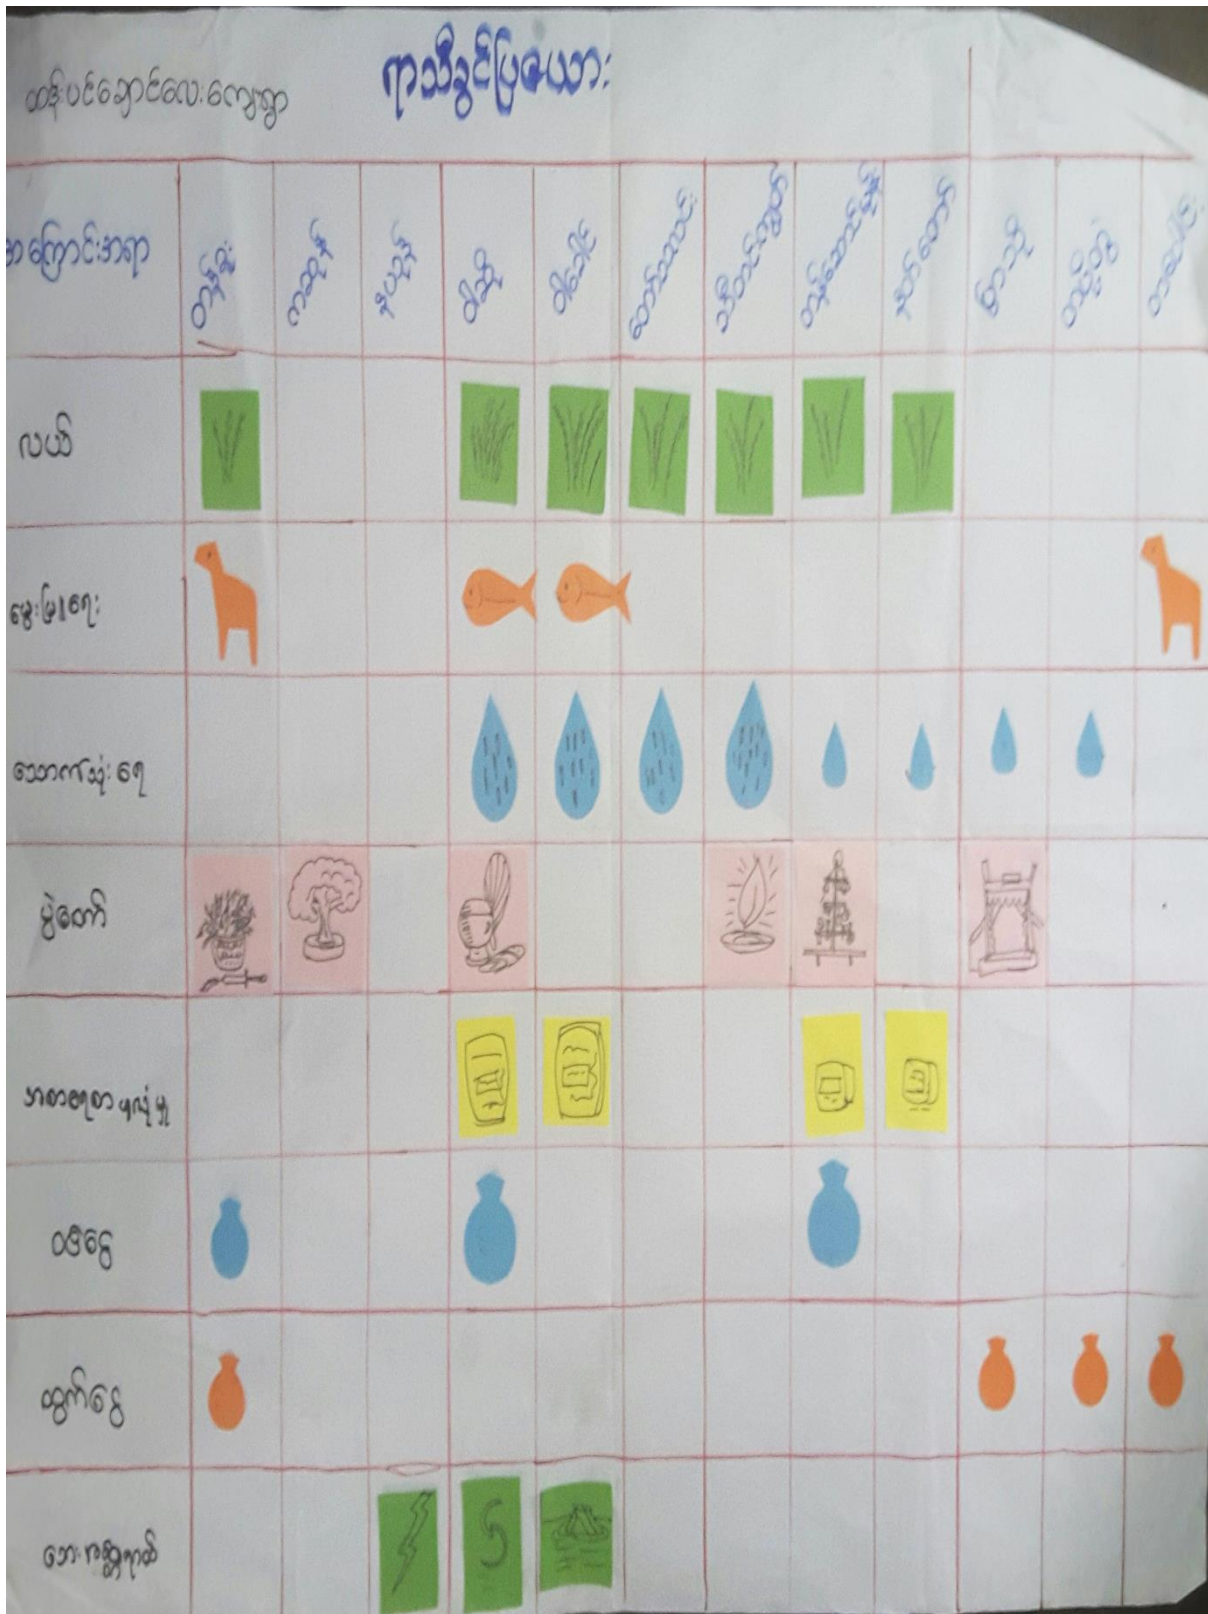 ထန်းပင်ချောင်လေးကျေးရွာ
ရာသီခွင်ပြဇယား
အကြောင်းအရာ
တန်ခူး
ကဆုန်
နယုန်
ဝါဆို
ဝါခေါင်
တော်သလင်း
သီတင်းကျွတ်
တန်ဆောင်မုန်း
နတ်တော်
ပြာသို
တပို့တွဲ
တပေါင်း
လယ်
မွေးမြူရေး
သောက်သုံးရေ
ပွဲတော်
အစားရေစာဖူလုံမှု
ဝင်ငွေ
ထွက်ငွေ
ဘေးအန္တရာယ်